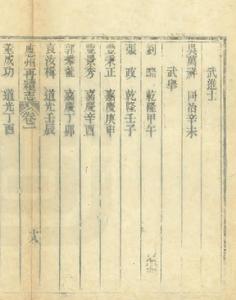 武進士
吳萬 同治辛未
武舉
劉 乾隆甲午
張 政 乾隆壬子
秉正 嘉慶庚申
景秀 嘉慶辛酉
郭攀龍 嘉慶丁卯
袁汝梅 道光壬辰
應州再續志 卷二
成功 道光丁酉